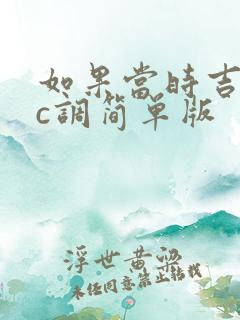 如果當時吉
c調简单版
浮世黄粱
未经同意禁止转载